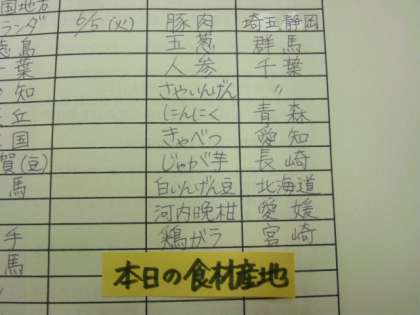 国地方
ランダ 6/5(火) 豚肉 埼玉静岡
徳島 玉葱 群馬
千葉 人参 千葉
知 さやいんげん 〃
丘 にんにく 青森
国 きゃべつ 愛知
賀(豆) じゃが芋 長崎
馬 白いんげん豆 北海道
河内晩柑 愛媛
手 鶏ガラ 宮崎
馬
本日の食材産地